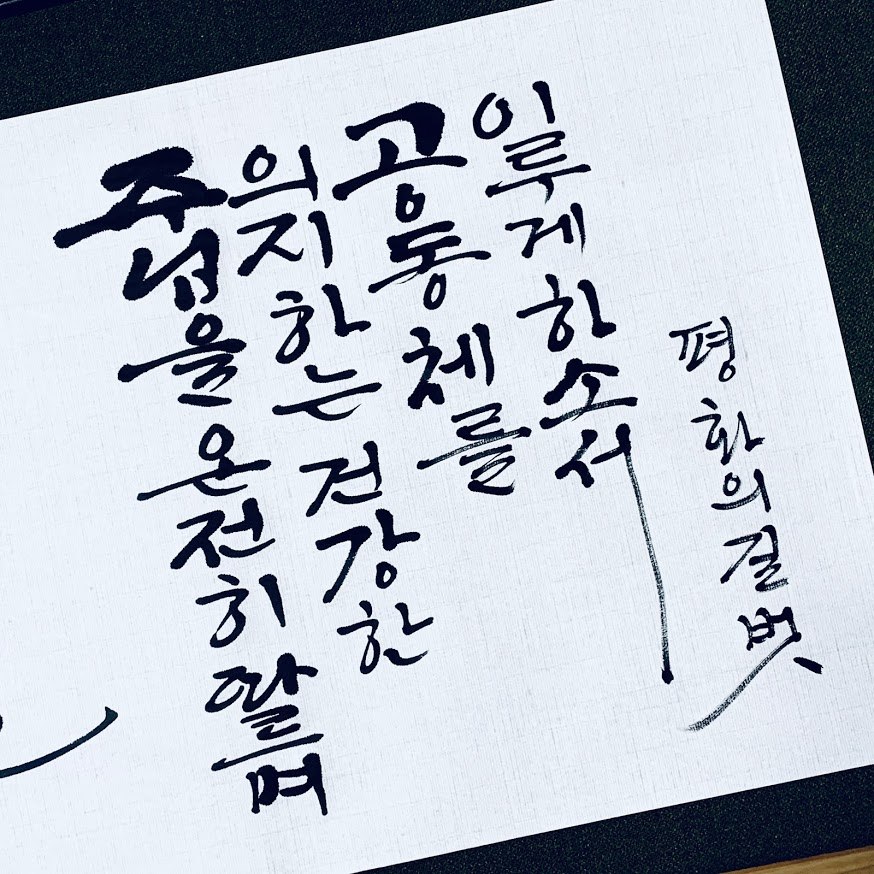 주님을 온전히 따르며
의지하는 건강한
공동체를
이루게 하소서
평화의 길벗